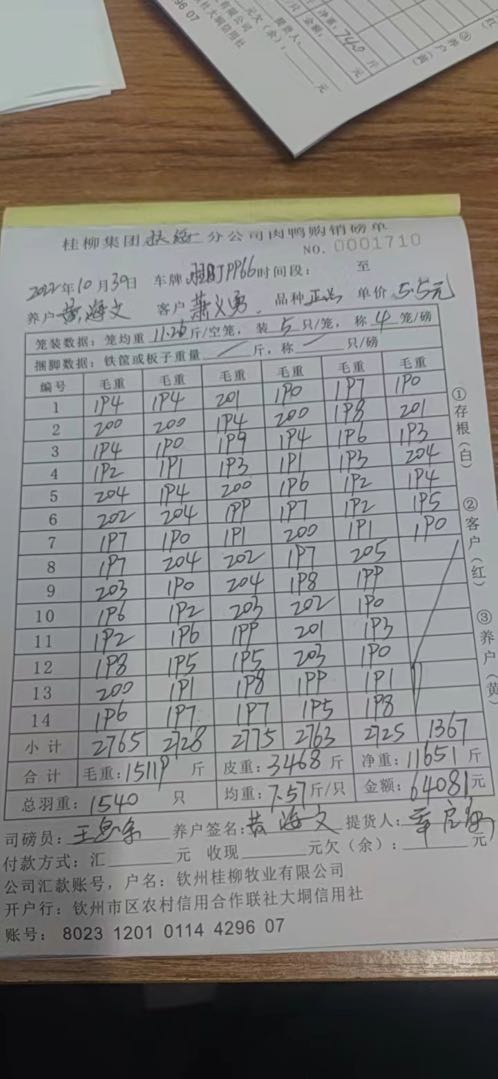 元欠(余):
元
提货人:
金额:
净重: 740 斤
元
大垌信用社
4296 07
③养户(黄)
桂柳集团扶绥分公司肉鸭购销磅单
NO. 0001710
2022年10月30日 车牌 PP66 时间段: 至
养户 黄海文 客户 萧义勇 品种 正品 单价 5.5元
笼装数据: 笼均重 11.26 斤/空笼, 装 5 只/笼, 称 4 笼/磅
捆脚数据: 铁筐或板子重量 / 斤, 称 / 只/磅
编号 毛重 毛重 毛重 毛重 毛重 毛重
1 194 194 201 190 197 190
2 200 200 194 200 198 201
3 194 190 199 194 196 193
4 192 191 193 191 193 204
5 204 194 200 196 192 194
6 202 204 199 197 192 195
7 197 190 191 200 191 190
8 197 204 202 197 205
9 203 190 204 198 199
10 196 192 203 202 190
11 192 196 199 201 193
12 198 195 195 203 190
13 200 191 198 199 191
14 196 197 197 195 198
小计 2765 2728 2775 2763 2725 1367
合计 毛重: 15119 斤 皮重: 3468 斤 净重: 11651 斤
总羽重: 1540 只 均重: 7.57 斤/只 金额: 64081 元
司磅员: 养户签名: 黄海文 提货人:
付款方式: 汇 元 收现 元欠(余): 元
公司汇款账号, 户名: 钦州桂柳牧业有限公司
开户行: 钦州市区农村信用合作联社大垌信用社
账号: 8023 1201 0114 4296 07
①存根(白)
②客户(红)
③养户(黄)